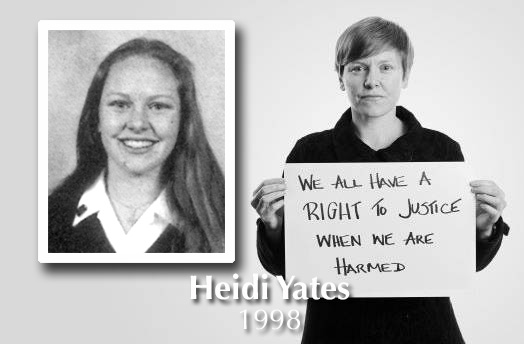 WE ALL HAVE A
RIGHT TO JUSTICE
WHEN WE ARE
HARMED
Heidi Yates
1998